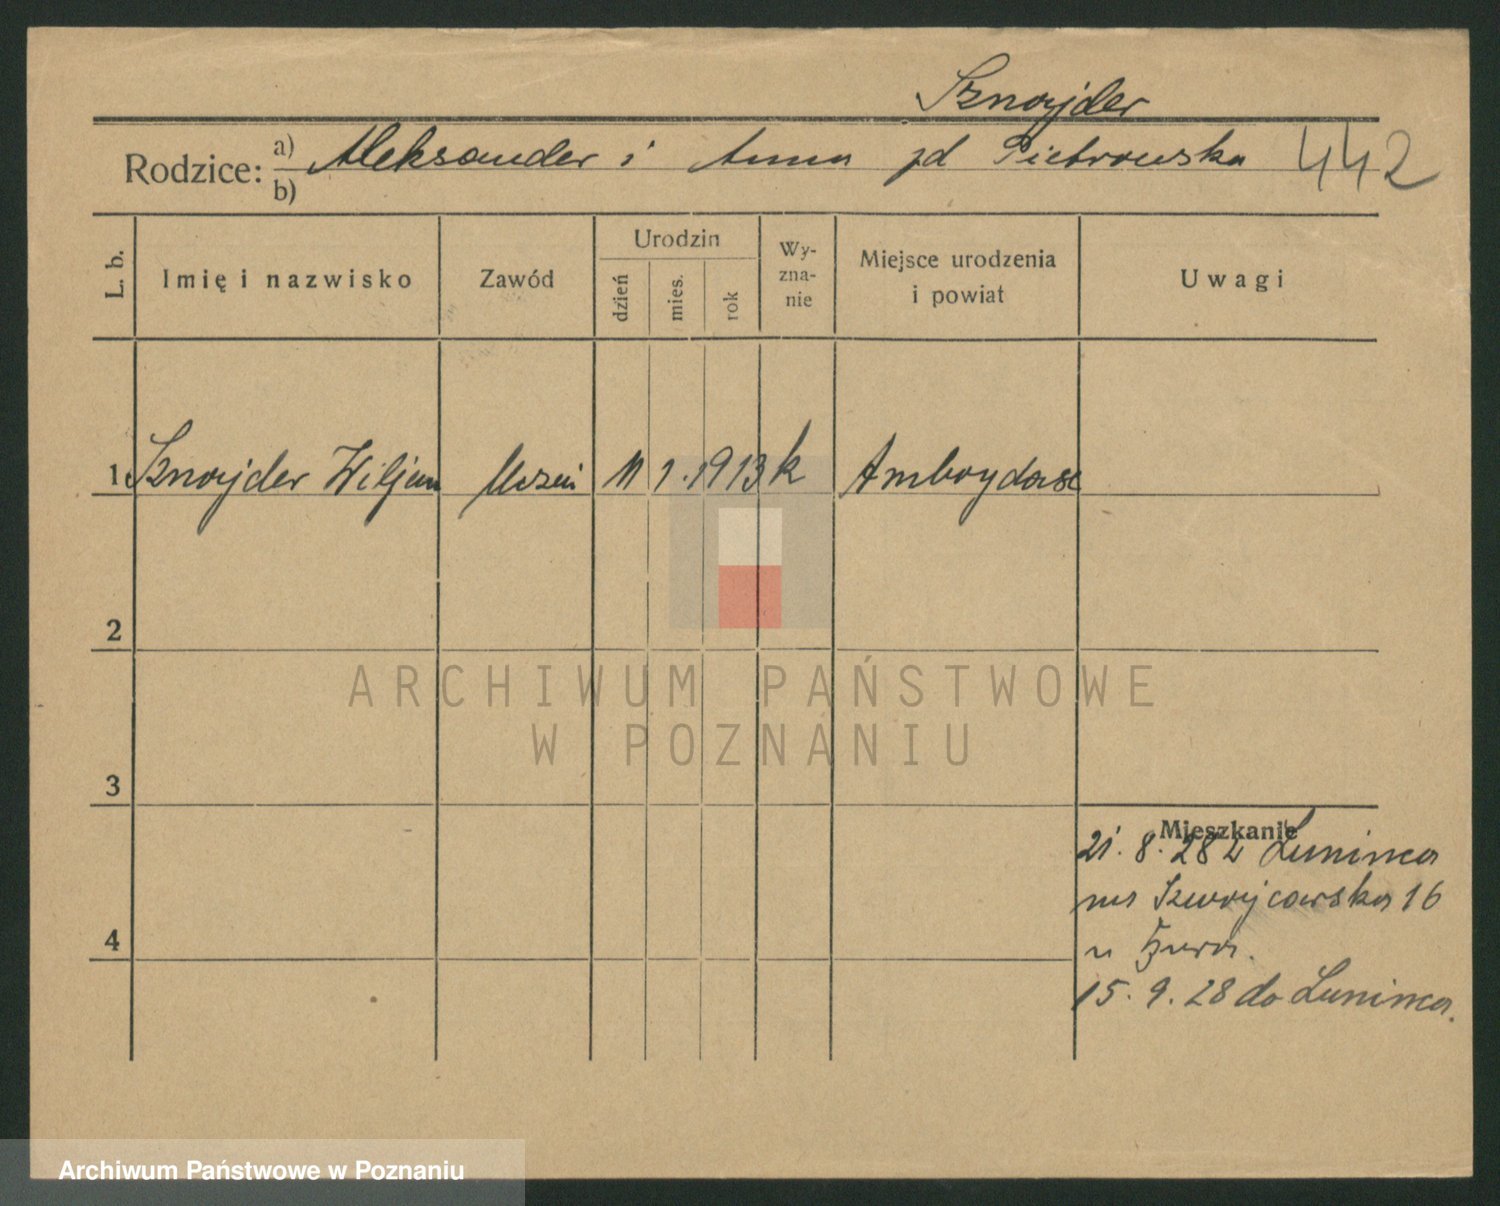 Sznajder
Rodzice: a) Aleksander i Anna zd Pietrowska 442
b)
L. b.
Imię i nazwisko
Zawód
Urodzin
dzień
mies.
rok
Wy-
zna-
nie
Miejsce urodzenia
i powiat
Uwagi
1 Sznajder Wiljam Uczeń 11 1. 1913 k
2
3
4
Mieszkanie
21. 8. 28 z Łunińca
na
16
u
15. 9. 28 do Łunińca.
ARCHIWUM PAŃSTWOWE
W POZNANIU
Archiwum Państwowe w Poznaniu